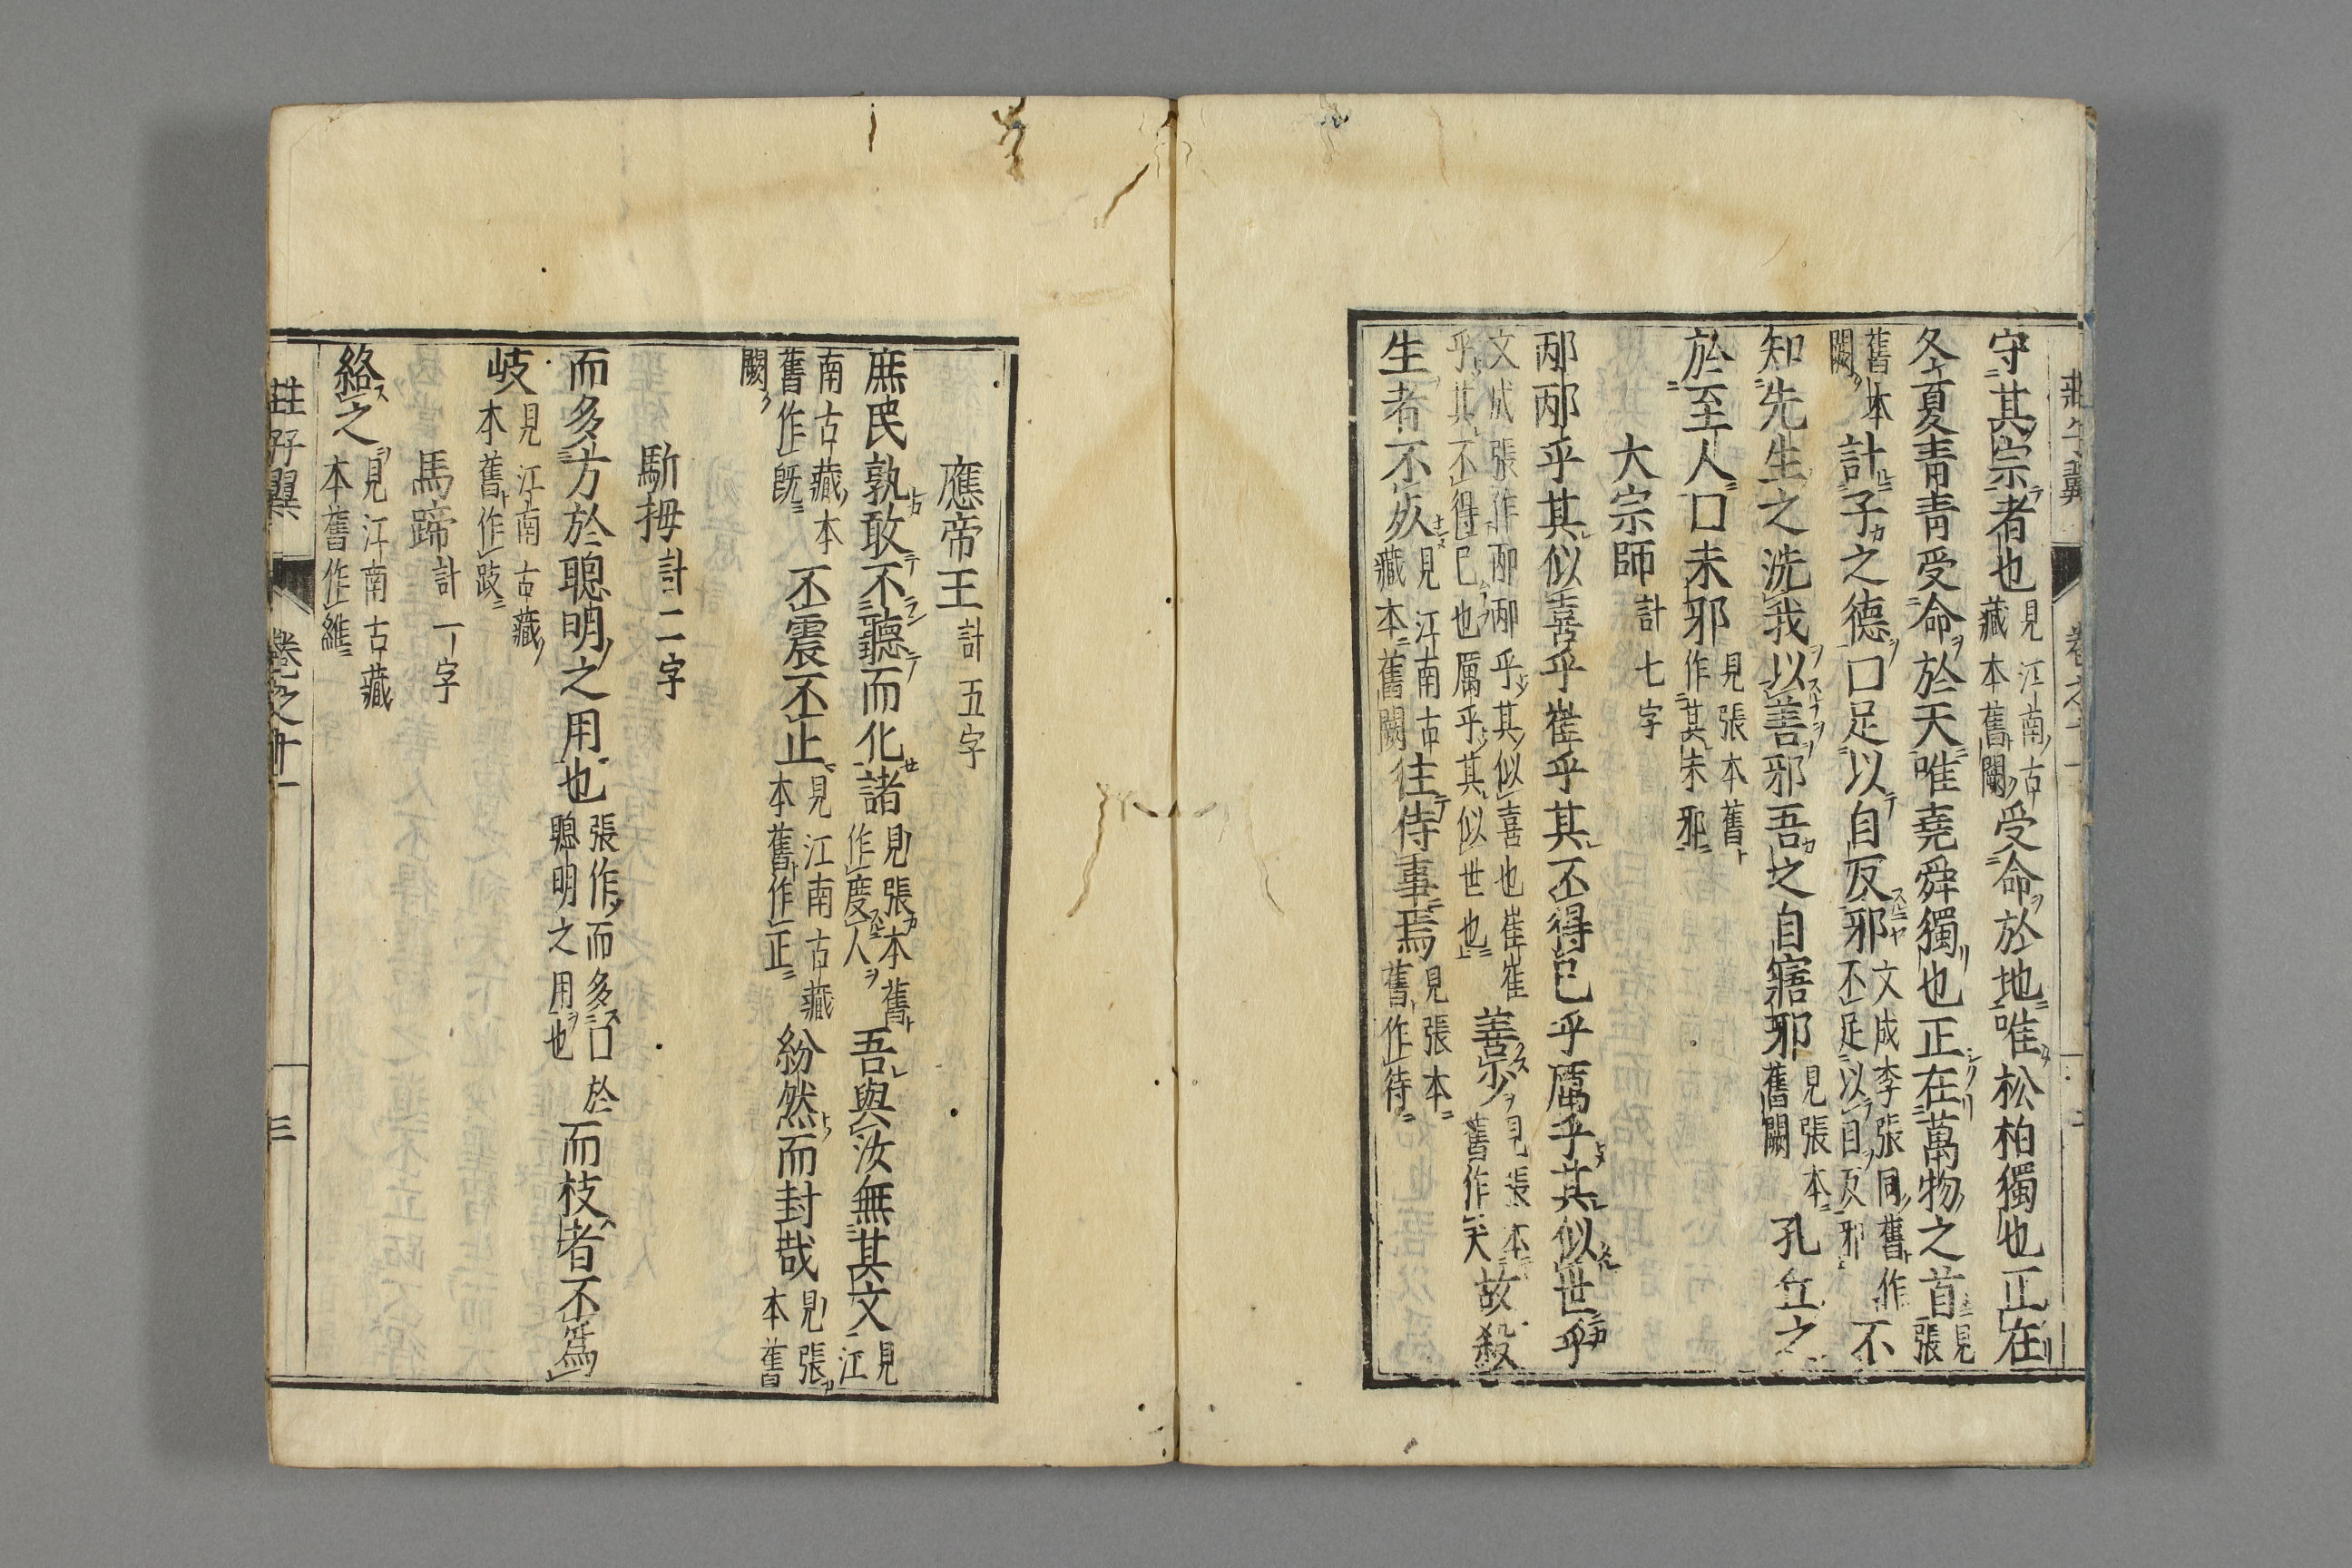 守其宗者也見江南古藏本舊闕受命於地唯松柏獨也正在
冬夏青青受命於天唯堯舜獨也正在萬物之首見張
舊本闕計子之德口足以自反邪文成李張同舊作不足以自反邪不
知先生之洗我以善邪吾之自寤邪見張本舊闕孔丘之
於至人口未邪見張本舊作其未邪
大宗師計七字
邴邴乎其似喜乎崔乎其不得已乎厲乎其似世乎
文成張作邴邴乎其似喜也崔崔乎其不得已也厲乎其似世也善少見張本舊作夭故殺
生者不死見江南古藏本舊闕往侍事焉見張本舊作待
應帝王計五字
庶民孰敢不聽而化諸見張本舊作度人吾與汝無其文見江
南古藏本舊作既闕不震不止見江南古藏本舊作正紛然而封哉見張本舊
駢拇計二字
而多方於聰明之用也張作而多口於聰明之用也而枝者不爲
岐見江南古藏本舊作跂
馬蹄計一字
絡之見江南古藏本舊作維
莊子翼 卷之十一 三